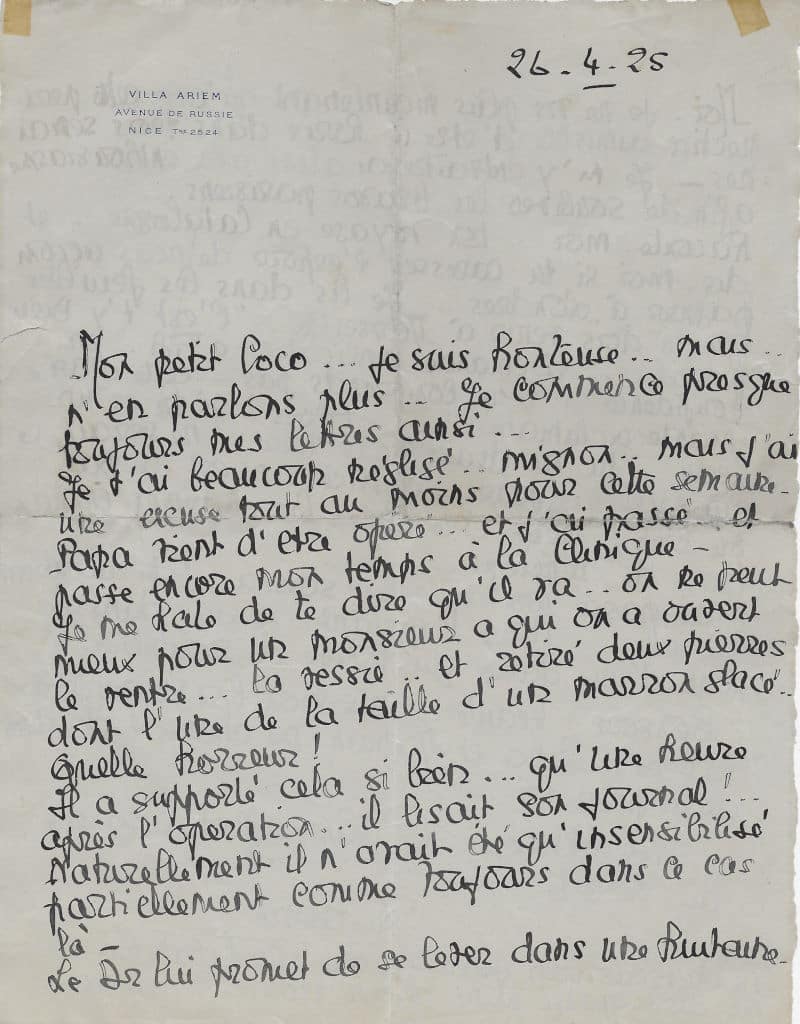 26-4-25
VILLA ARIEM
AVENUE DE RUSSIE
NICE Tel 2524
Mon petit Coco... Je suis honteuse.. mais..
n'en parlons plus.. Je commence presque
toujours mes lettres ainsi...
Je t'ai beaucoup négligé.. mignon.. mais j'ai
une excuse tout au moins pour cette semaine.
Papa vient d'etre opéré... et j'ai passé.. et
passe encore mon temps à la Clinique -
Je me hate de te dire qu'il va.. on ne peut
mieux pour un monsieur a qui on a ouvert
le ventre... la vessie.. et retiré deux pierres
dont l'une de la taille d'un marron glacé..
Quelle horreur!
Il a supporté cela si bien... qu'une heure
après l'operation... il lisait son journal!...
Naturellement il n'avait été qu'insensibilisé
partiellement comme toujours dans ce cas
là -
Le Dr lui promet de se lever dans une huitaine.